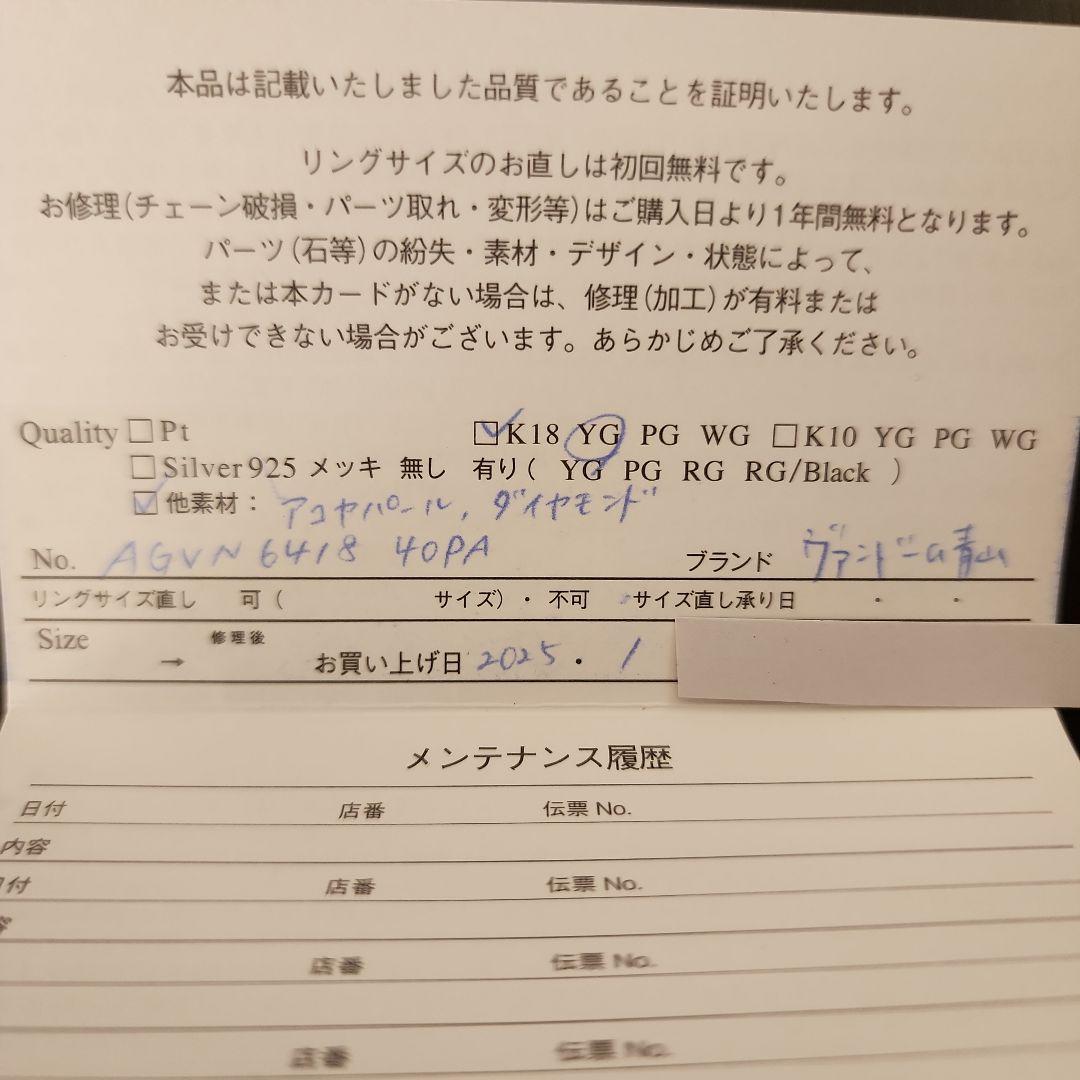 本品は記載いたしました品質であることを証明いたします。
リングサイズのお直しは初回無料です。
お修理(チェーン破損・パーツ取れ・変形等)はご購入日より1年間無料となります。
パーツ(石等)の紛失・素材・デザイン・状態によって、
または本カードがない場合は、修理(加工)が有料または
お受けできない場合がございます。あらかじめご了承ください。
Quality □Pt ☑K18 YG PG WG □K10 YG PG WG
□Silver925 メッキ 無し 有り( YG PG RG RG/Black )
☑他素材: アコヤパール, ダイヤモンド
No. AGVN 6418 40PA ブランド ヴァンドーム青山
リングサイズ直し 可( サイズ)・不可 サイズ直し承り日 ・ ・
Size → 修理後 お買い上げ日 2025・1
メンテナンス履歴
日付 店番 伝票 No.
内容
日付 店番 伝票 No.
容
店番 伝票 No.
店番 伝票 No.